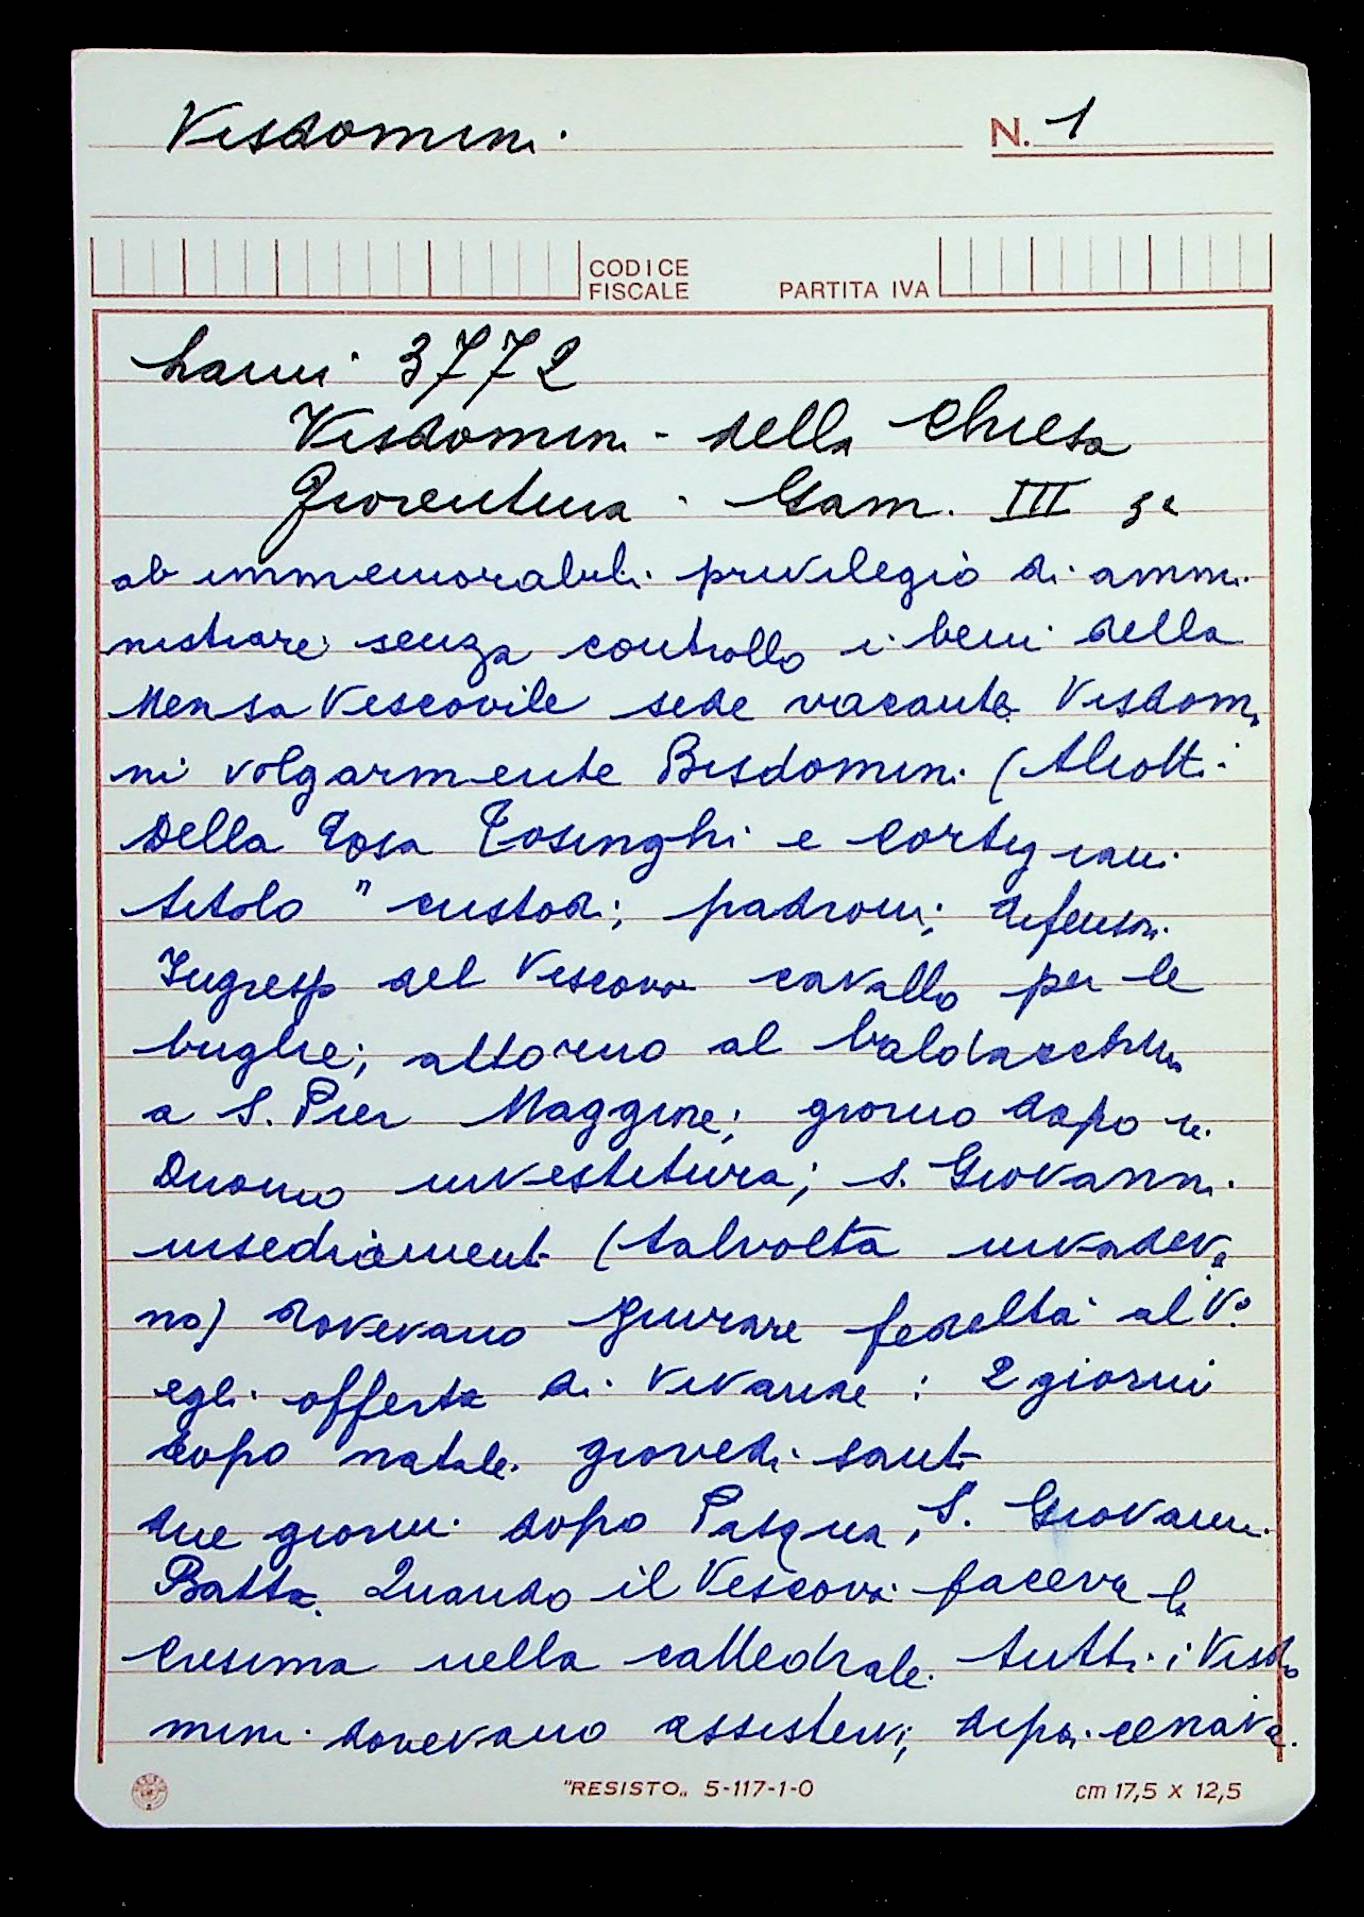 Visdomini
N. 1
CODICE
FISCALE
PARTITA IVA
Lami 3772
Visdomini - della Chiesa
Fiorentina - Gam. III
ab immemorabili privilegio di ammi
nistrare senza controllo i beni della
Mensa Vescovile sede vacante Visdomi
ni volgarmente Bisdomini (Aliotti
Della Tosa Tosinghi e Cortigiani
titolo " custodi; padroni; difensori
Ingresso del Vescovo cavallo per le
briglie; attorno al baldacchino
a S. Pier Maggiore; giorno dopo in
Duomo investitura; S. Giovanni
insediamento (talvolta invadeva
no) dovevano giurare fedeltà al V°
egli offerta di vivande: 2 giorni
dopo natale giovedì santo
due giorni dopo Pasqua, S. Giovanni
Batta. Quando il Vescovo faceva la
Cresima nella cattedrale tutti i Visdo
mini dovevano assistervi; dopo cenava
"RESISTO„ 5-117-1-0
cm 17,5 x 12,5